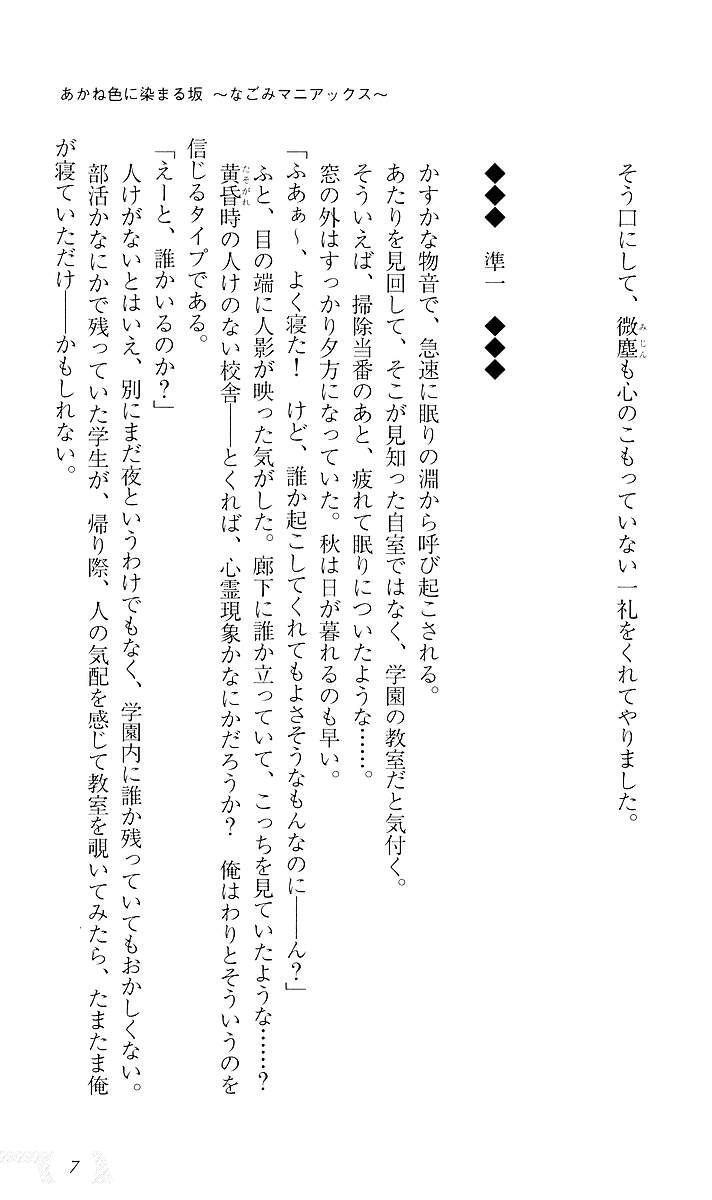 あかね色に染まる坂 ～なごみマニアックス～
そう口にして、微塵も心のこもっていない一礼をくれてやりました。
◆◆◆　準一　◆◆◆
かすかな物音で、急速に眠りの淵から呼び起こされる。
あたりを見回して、そこが見知った自室ではなく、学園の教室だと気付く。
そういえば、掃除当番のあと、疲れて眠りについたような……。
窓の外はすっかり夕方になっていた。秋は日が暮れるのも早い。
「ふあぁ～、よく寝た！　けど、誰か起こしてくれてもよさそうなもんなのに――ん？」
ふと、目の端に人影が映った気がした。廊下に誰か立っていて、こっちを見ていたような……？
黄昏時の人けのない校舎――とくれば、心霊現象かなにかだろうか？　俺はわりとそういうのを
信じるタイプである。
「えーと、誰かいるのか？」
人けがないとはいえ、別にまだ夜というわけでもなく、学園内に誰か残っていてもおかしくない。
部活かなにかで残っていた学生が、帰り際、人の気配を感じて教室を覗いてみたら、たまたま俺
が寝ていただけ――かもしれない。
7